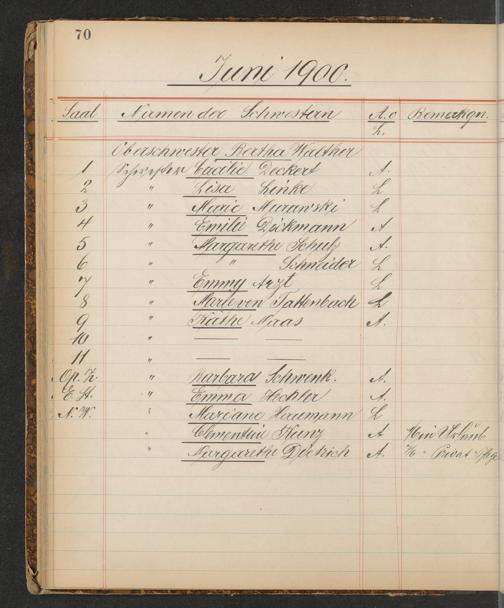 70
Juni 1900.
Saal Namen der Schwestern A. o L. Bemerkgn.
Oberschwester Bertha Walther
1 Schwester Cäcilie Deckert A.
2 " Lisa Linke L
3 " Marie Murawski L
4 " Emilie Dickmann A
5 " Margarethe Schulz A.
6 " " Schneider L
7 " Emmy L
8 " Marie von Tattenbach L
9 " Käthe Maas A.
10 " — —
11 " — —
Op. Z. " Barbara Schwenk. A.
E. St. " Emma Hechler A.
N. W. " Mariane Haumann L
" Clementine Kunz A
" Margarethe Dietrich A. Privat